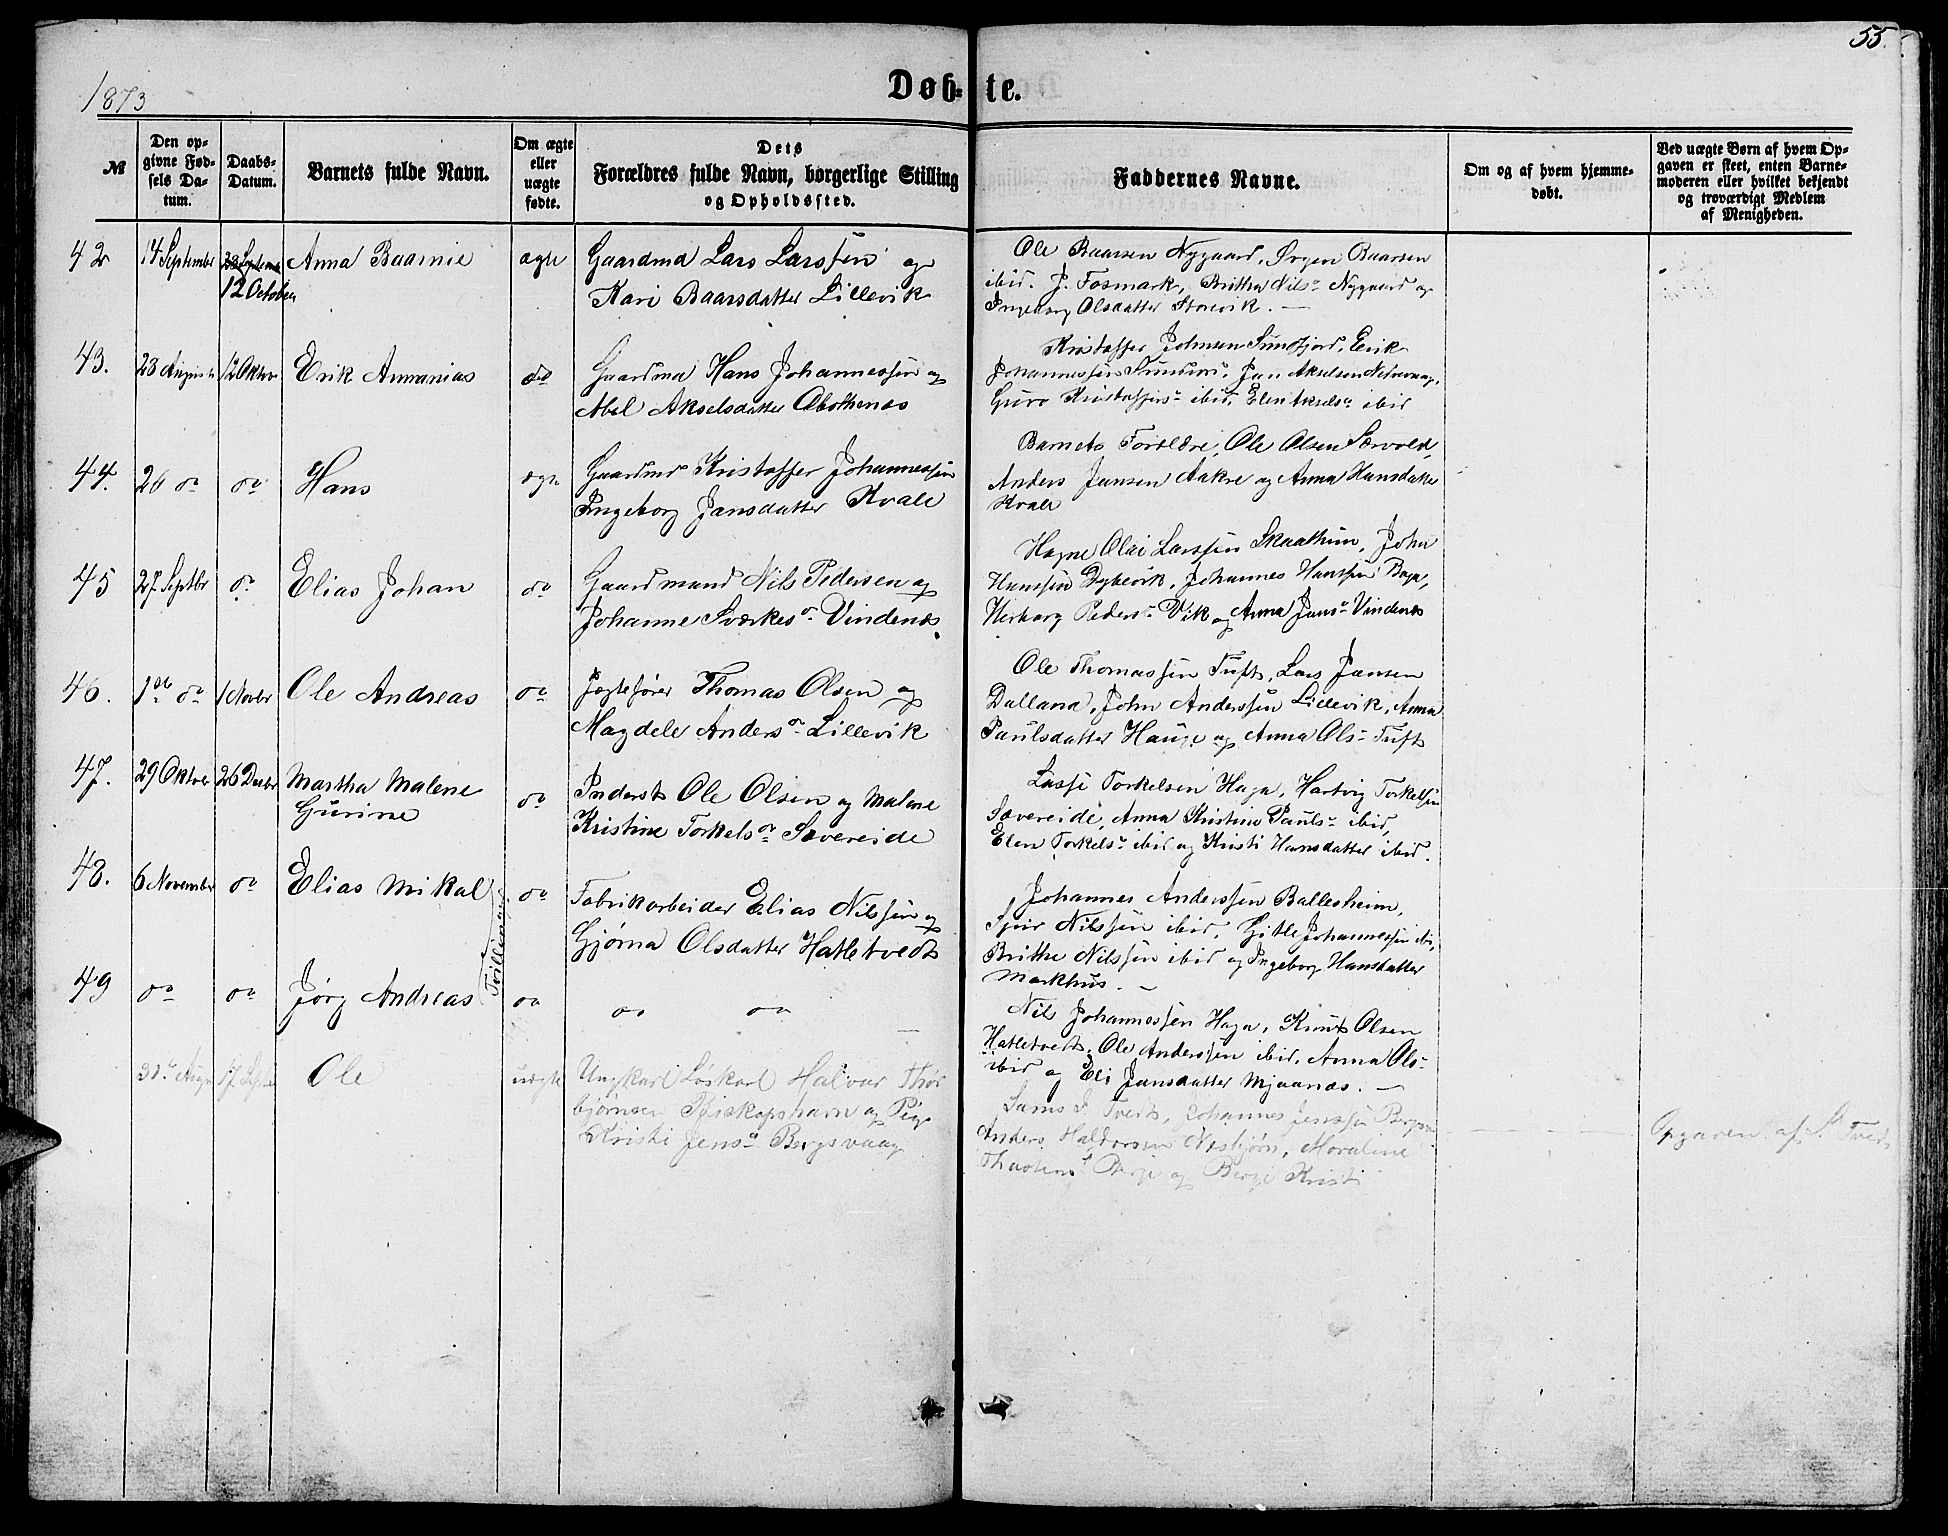 55.
1873
Døb-te.
№
Den op-
givne Fød-
sels Da-
tum.
Daabs-
Datum.
Barnets fulde Navn.
Om ægte
eller
uægte
fødte.
Dets
Forældres fulde Navn, borgerlige Stilling
og Opholdssted.
Faddernes Navne.
Om og af hvem hjemme-
døbt.
Ved uægte Børn af hvem Op-
gaven er skeet, enten Barne-
moderen eller hvilket bekjendt
og troværdigt Medlem
af Menigheden.
42
14 September
12 October
Anna Baarnie
ægte
Gaardmd Lars Larssen og
Kari Baarsdatter Lillevik
Ole Baarsen Nygaard, Ørgen Baarsen
ibid. J. Fosmark, Britha Nils Nygaard og
Ingeborg Olsdatter Storevik. —
43.
23 August
12 Oktbr
Erik Annanias
do
Gaardmd Hans Johannessen og
Abel Akselsdatter
Kristoffer Johnsen Sundfjord, Erik
Johannessen Jan Akselsen
Guro Kristoffers ibid, Elen Aksels ibid
44.
26 do
do
Hans
ægte
Gaardmd Kristoffer Johannessen
Ingeborg Jansdatter Kvale
Barnets Forældre, Ole Olsen Særvold,
Anders Jansen Aakre og Anna Hansdatter
Kvale
45
27 Septbr
do
Elias Johan
do
Gaardmand Nils Pedersen og
Johanne Sværkes Vindenæs
Hagne Olai Larssen Skaathun, John
Hanssen Dybevik, Johannes Hanssen
Herborg Peders Vik og Anna Jans Vindenæs
46.
1ste do
1 Novbr
Ole Andreas
do
Jægtefører Thomas Olsen og
Magdele Anders Lillevik
Ole Thomassen Tuft, Lars Jansen
Dalland, John Anderssen Lillevik, Anna
Paulsdatter Hauge og Anna Ols Tuft
47.
29 Oktober
26 Decbr
Martha Malene
Gurine
do
Inderst Ole Olsen og Malene
Kristine Torkels Sævereide
Lasse Torkelsen Haga, Hartvig Torkelsen
Sævereide, Anna Kristine Pauls ibid,
Elen Torkels ibid og Kristi Hansdatter ibid.
48.
6 November
do
Elias Mikal
Tvillinger
do
Fabrikarbeider Elias Nilssen og
Gjørna Olsdatter Hatletvedt
Johannes Anderssen Ballesheim,
Sjur Nilssen ibid, Gitle Johannessen ibi,
Brithe Nilssen ibid og Ingeborg Hansdatter
Markhus. —
49
do
do
Jørg Andreas
do
do do
Nils Johannessen Haga, Knut Olsen
Hatletvedt, Ole Anderssen ibid, Anna Ols
ibid og Eli Jansdatter Mjaanæs. —
31te Aug
17 Septbr
Ole
uægte
Ungkarl Løskarl Halvar Thor
bjørnsen Bískopshavn og Pige
Kristi Jens Bergsvaag
Tvedt, Johannes Jenssen
Anders Haldorsen Nesbjørn,
og Kristi
Opgaven af S. Tvedt